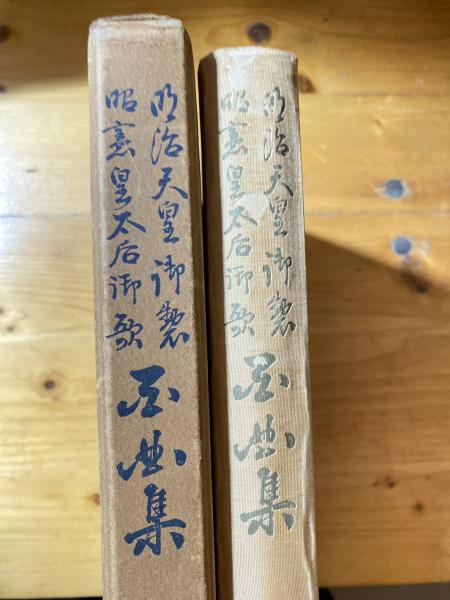 明治天皇御製
昭憲皇太后御歌
百曲集
明治天皇御製
昭憲皇太后御歌
百曲集